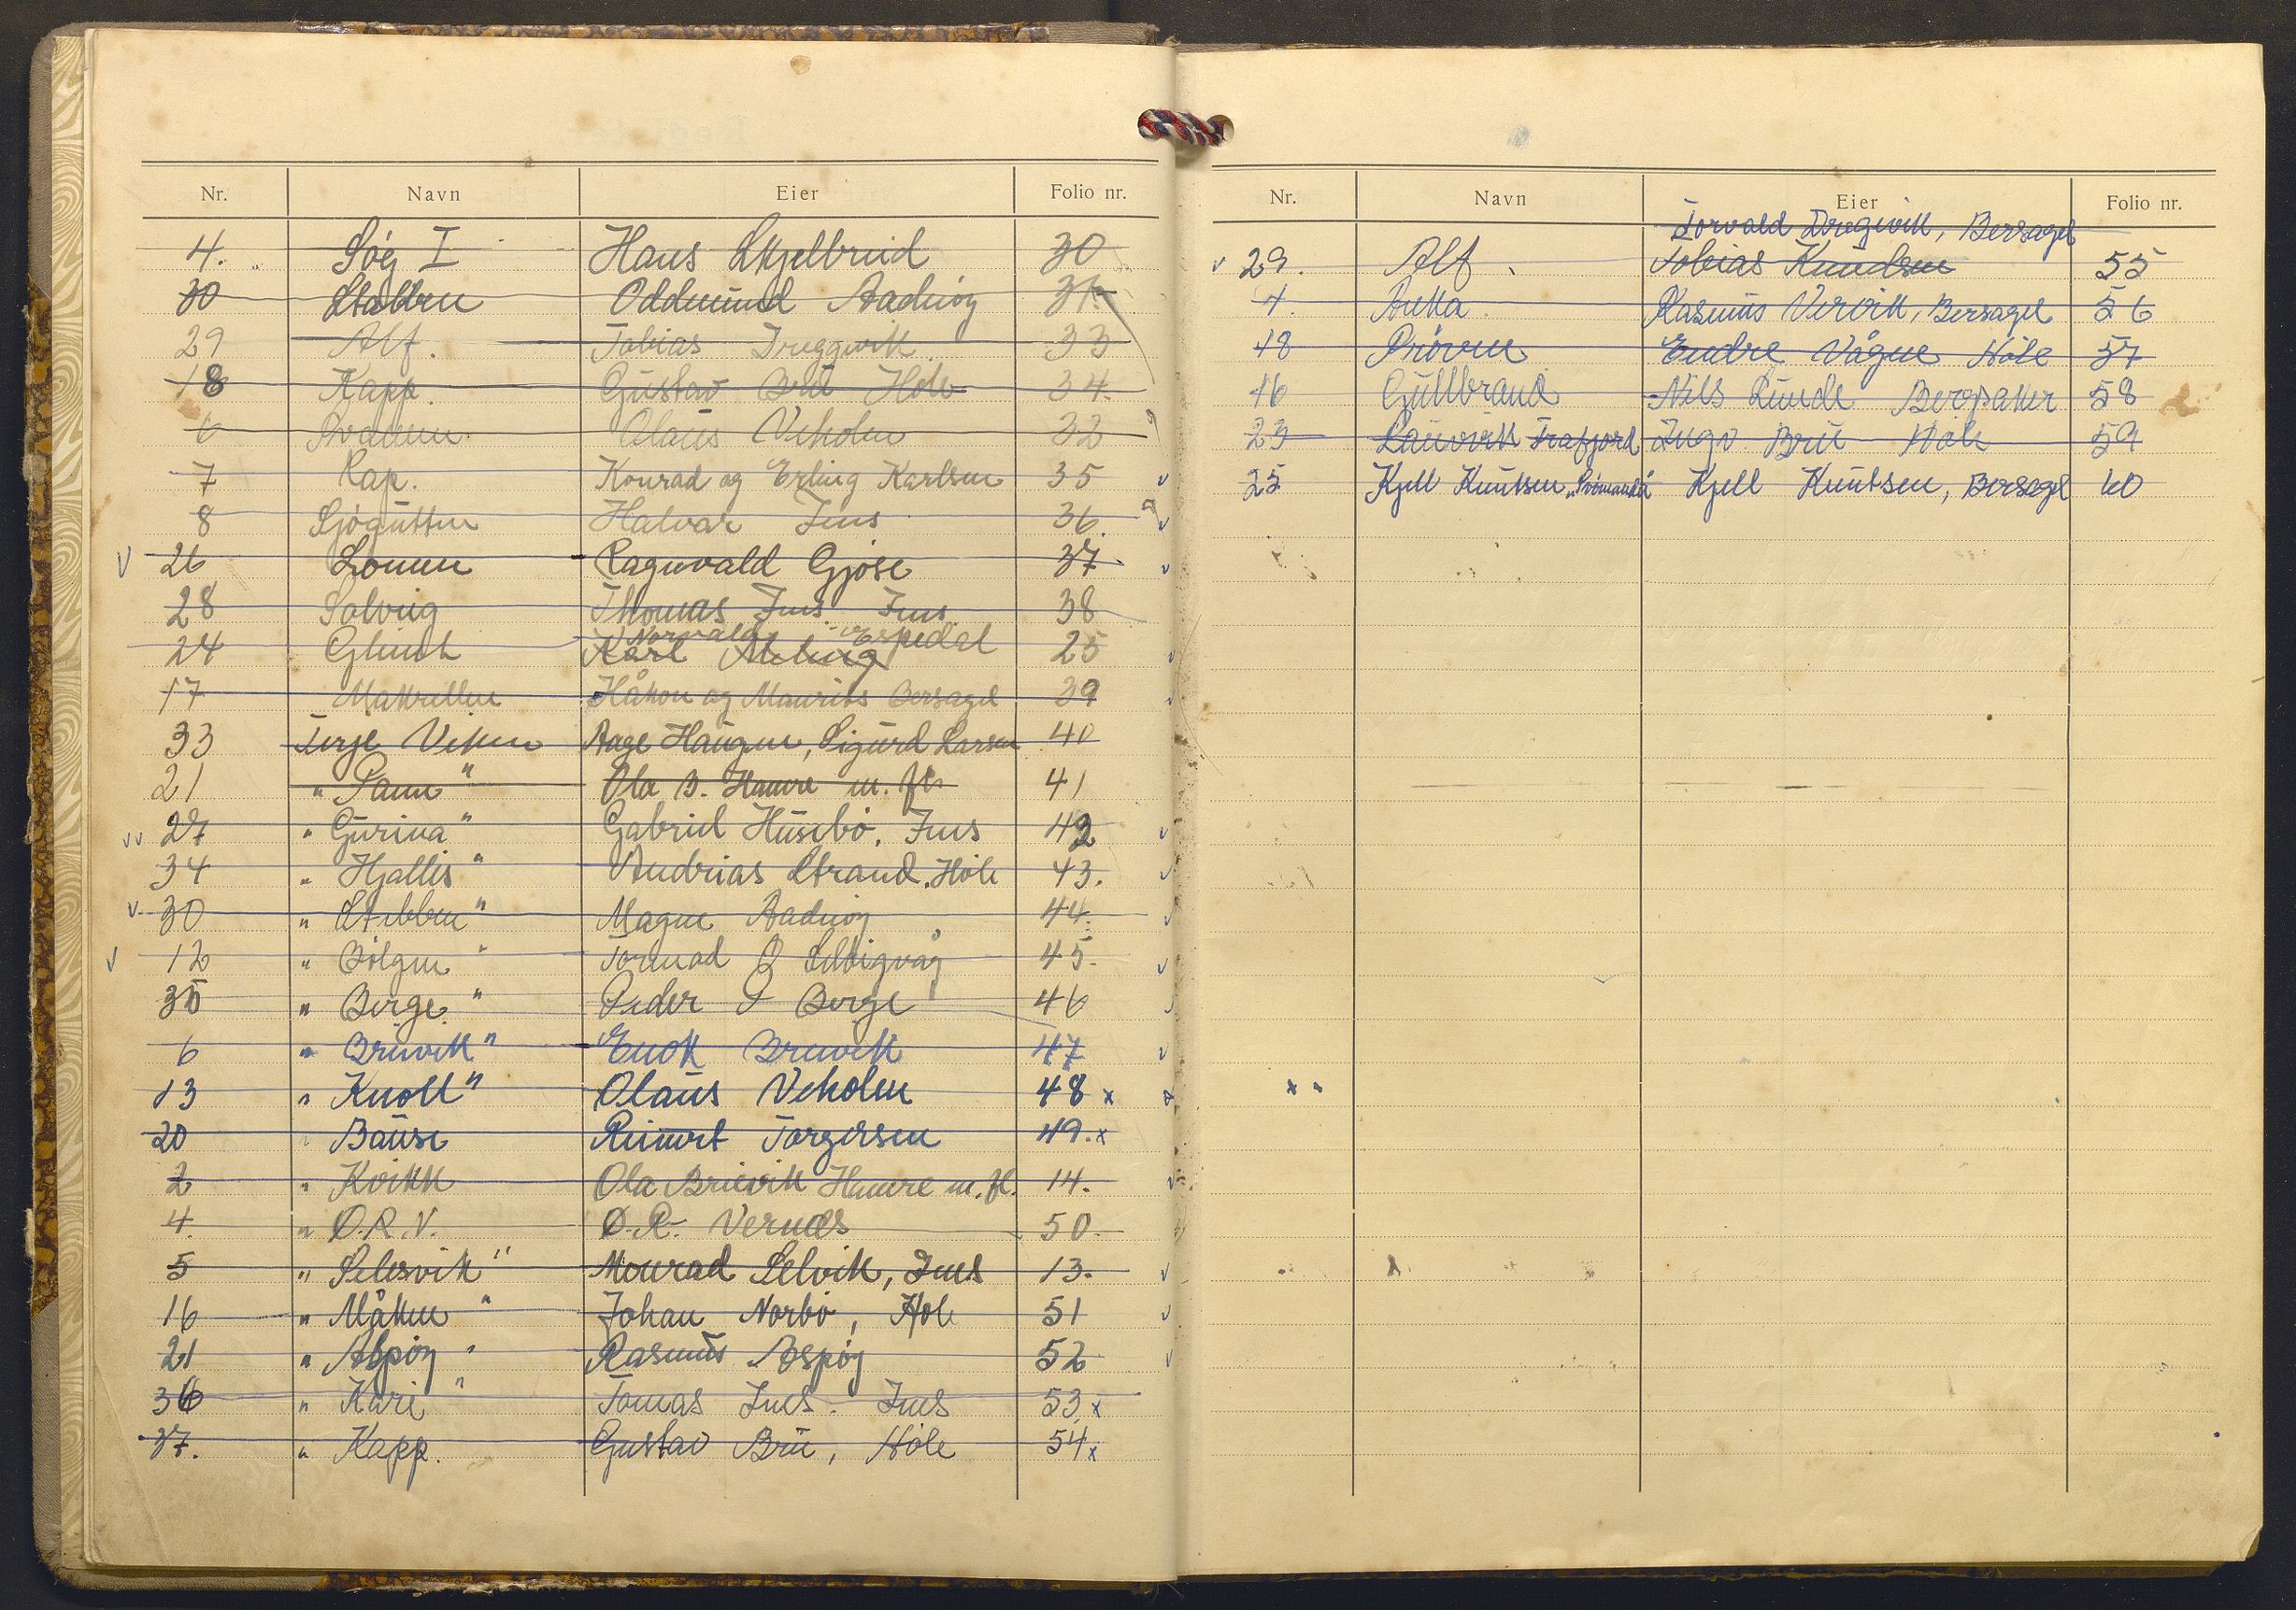 Nr. Navn Eier Folio nr.
4. Søg I Hans Skjelbreid 30
30 Stabben Oddmund Aadnøy 31.
29 Alf. Tobias Dreggevik 33
18 Kapp. Gustav Bru Hole 34.
6 Svanen Olaus Veholm 32
7 Rap. Konrad og Erling Karlsen 35
8 Sjøgutten Halvar Ims 36
26 Lomen Ragnvald Gjøse 37.
28 Solveig Thomas Ims. Ims 38
Norvald Espedal
24 Glimt Karl 25
17 Makrellen Håkon og Maurits Bersagel 39
33 Terje Viken Aage Haugen, Sigurd Larsen 40
21 " " Ola B. Hamre m. fl. 41
27 " Gurina " Gabriel Husebø, Ims 42
34 " Hjallis " Andrias Strand. Høle 43.
30 " Stabben " Magne Aadnøy 44.
12 " Bølgen " Tormod O Selvigvåg 45.
35 " Berge " Peder P Berge 46
6 " Breivik " Enok Breivik 47
13 " Knoll " Olaus Veholm 48 x
20 " Bause Reinert Torgersen 49. x
2 " Kvikk Ola Breivik Hamre m. fl. 14.
4. " O.R.V. O.R. Vernes 50.
5 " Selesvik " Monrad Selvik, Ims 13.
16 " Måken " Johan Norbø, Hole 51
21 " Aspøy " Rasmus Aspøy 52
36 " Kari " Tomas Ims. Ims 53 x
37. " Kapp. Gustav Bru, Høle 54 x
Nr. Navn Eier Folio nr.
Torvald Dregevik, Bersagel
29. Alf. Tobias Knudsen 55
4. Anka Rasmus Vervik, Bersagel 56
18 Prøven Endre Vågne Høle 57
16 Gullbrand Nils Lunde Bergsaker 58
23 Lauvvik Frafjord Ingv. Bru Høle 59
25 Kjell Knutsen, Kjell Knutsen, Bersagel 60